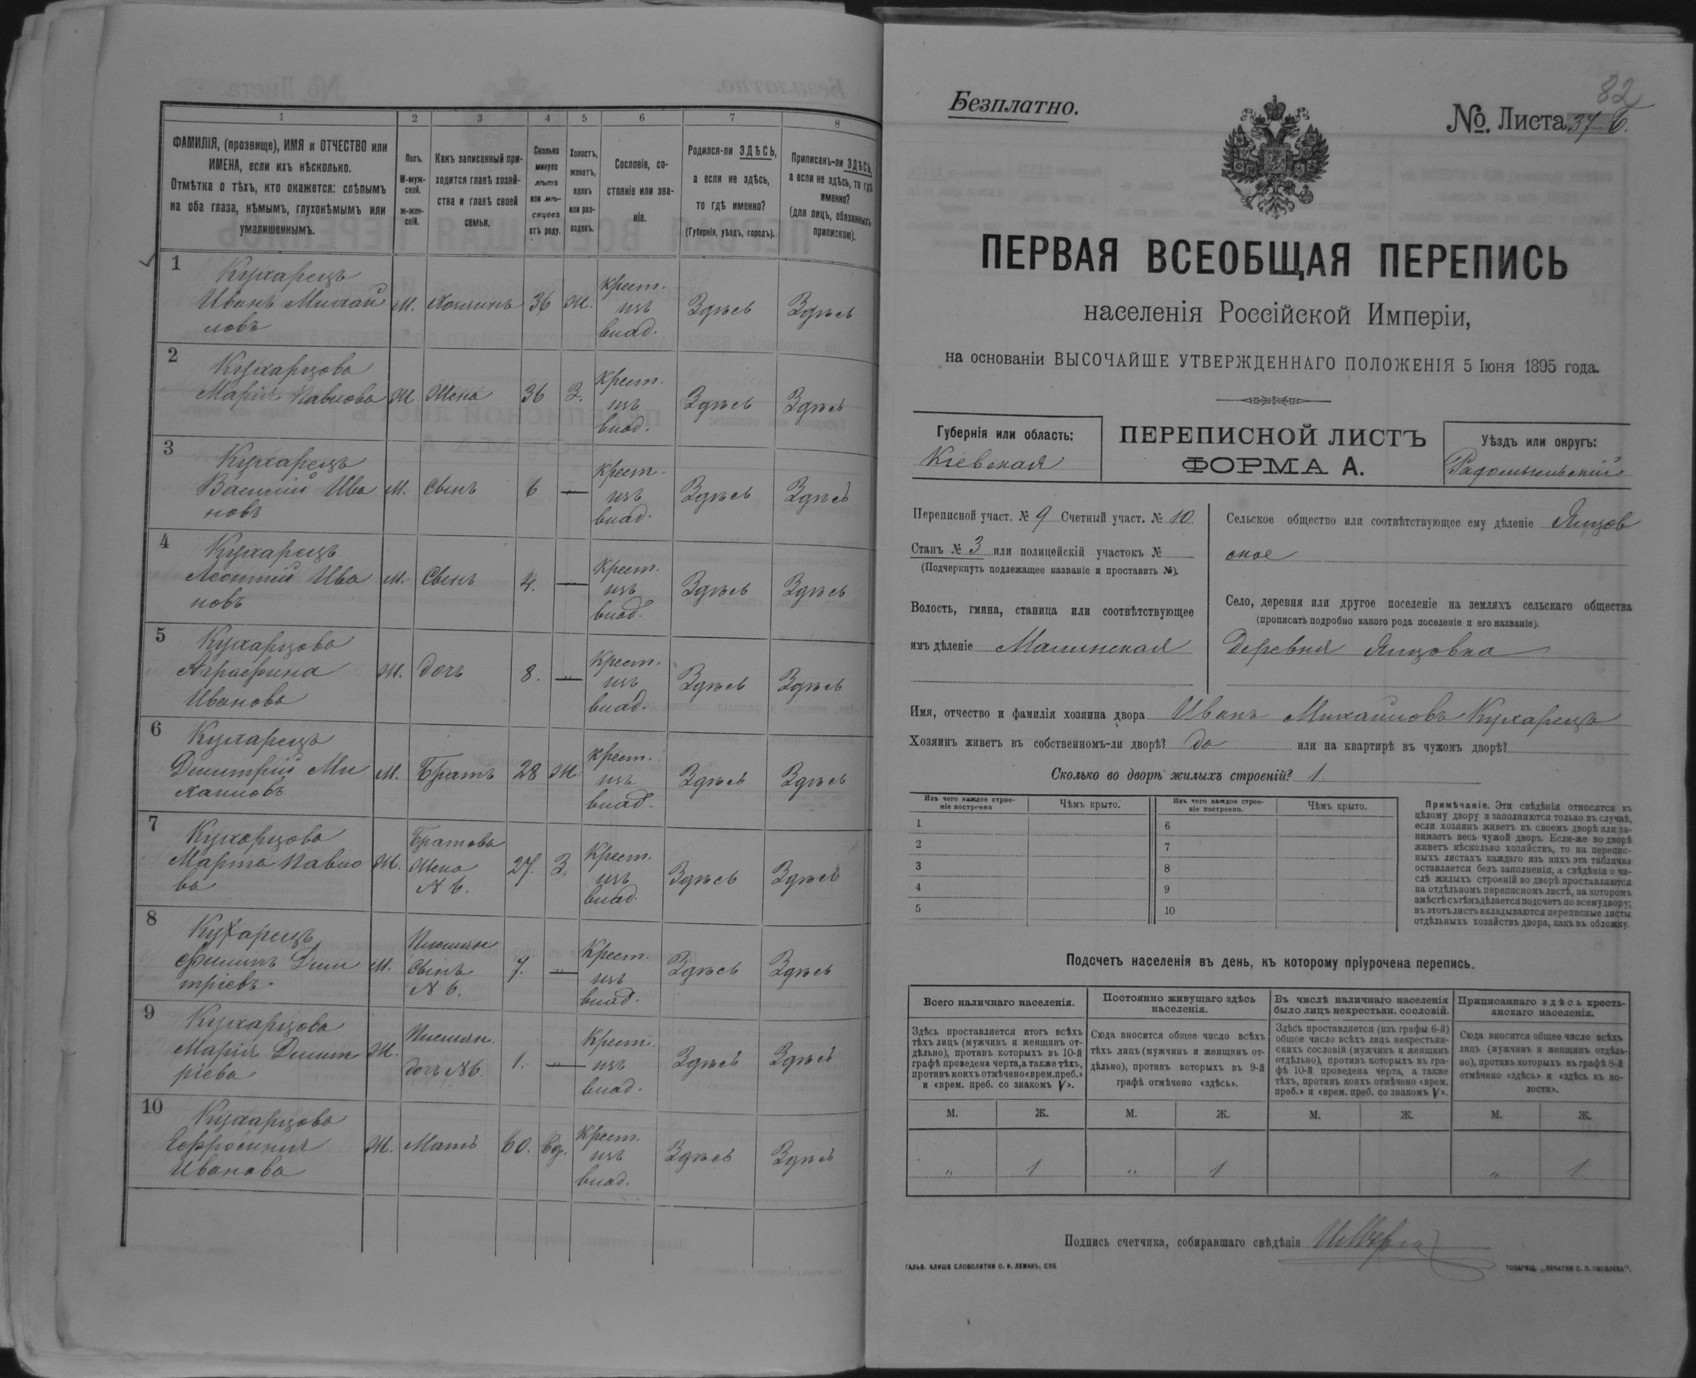 1 2 3 4 5 6 7 8
ФАМИЛІЯ, (прозвище), ИМЯ и ОТЧЕСТВО или
ИМЕНА, если ихъ нѣсколько.
Отмѣтка о тѣхъ, кто окажется: слѣпымъ
на оба глаза, нѣмымъ, глухонѣмымъ или
умалишеннымъ.
Полъ.
М-муж-
ской.
ж-жен-
скій.
Какъ записанный при-
ходится главѣ хозяй-
ства и главѣ своей
семьи.
Сколько
минуло
лѣтъ
или мѣ-
сяцевъ
отъ роду.
Холостъ,
женатъ,
вдовъ
или раз-
веденъ.
Сословіе, со-
стояніе или зва-
ніе.
Родился-ли ЗДѢСЬ,
а если не здѣсь,
то гдѣ именно?
(Губернія, уѣздъ, городъ).
Приписанъ-ли ЗДѢСЬ,
а если не здѣсь, то гдѣ
именно?
(для лицъ, обязанныхъ
припискою).
1
Кухарецъ
Иванъ Михай
ловъ
м. Хозяинъ 36 ж.
крест.
изъ
влад.
Здѣсь Здѣсь
2
Кухарцова
Марія Павлова
ж Жена 36 З.
крест.
изъ
влад.
Здѣсь Здѣсь
3
Кухарецъ
Василій Ива
новъ
м. сынъ 6 —
крест.
изъ
влад.
Здѣсь Здѣсь
4
Кухарецъ
Леонтій Ива
новъ
м. Сынъ 4. —
крест.
изъ
влад.
Здѣсь Здѣсь
5
Кухарцова
Аграфина
Иванова
ж. дочь 8. —
крест.
изъ
влад.
Здѣсь Здѣсь
6
Кухарецъ
Дмитрій Ми
хаиловъ
м. Братъ 28 ж
крест.
изъ
влад.
Здѣсь Здѣсь
7
Кухарцова
Марта Павло
ва
ж.
Братова
жена
N 6.
27. З.
Крест.
изъ
влад.
Здѣсь Здѣсь
8
Кухарецъ
Филипъ Дми
тріевъ
м.
Племян
сынъ
N 6.
7. —
Крест.
изъ
влад.
Здѣсь Здѣсь
9
Кухарцова
Марія Дмит
ріева
ж.
Племян.
дочь N 6.
1. —
Крест.
изъ
влад.
Здѣсь Здѣсь
10
Кухарцова
Ефросинія
Иванова
ж. Мать 60. вд.
Крест.
изъ
влад.
Здѣсь Здѣсь
82
Безплатно.
№. Листа
ПЕРВАЯ ВСЕОБЩАЯ ПЕРЕПИСЬ
населенія Россійской Имперіи,
на основаніи ВЫСОЧАЙШЕ УТВЕРЖДЕННАГО ПОЛОЖЕНІЯ 5 Іюня 1895 года.
Губернія или область:
Кіевская
ПЕРЕПИСНОЙ ЛИСТЪ
ФОРМА А.
Уѣздъ или округъ:
Радомысльскій
Переписной участ. № 9 Счетный участ. № 10.
Станъ № 3 или полицейскій участокъ №
(Подчеркнуть подлежащее названіе и проставить №).
Волость, гмина, станица или соотвѣтствующее
имъ дѣленіе Малинская
Сельское общество или соотвѣтствующее ему дѣленіе Янов
ское
Село, деревня или другое поселеніе на земляхъ сельскаго общества
(прописать подробно какого рода поселеніе и его названіе).
Деревня
Имя, отчество и фамилія хозяина двора Иванъ Михаиловъ Кухарецъ
Хозяинъ живетъ въ собственномъ-ли дворѣ? да или на квартирѣ въ чужомъ дворѣ?
Сколько во дворѣ жилыхъ строеній? 1.
Изъ чего каждое строе-
ніе построено
Чѣмъ крыто.
Изъ чего каждое строе-
ніе построено.
Чѣмъ крыто.
1 6
2 7
3 8
4 9
5 10
Примѣчаніе. Эти свѣдѣнія относятся къ
цѣлому двору и заполняются только въ случаѣ,
если хозяинъ живетъ въ своемъ дворѣ или за-
нимаетъ весь чужой дворъ. Если-же во дворѣ
живетъ нѣсколько хозяйствъ, то на перепис-
ныхъ листахъ каждаго изъ нихъ эта табличка
оставляется безъ заполненія, а свѣдѣнія о чи-
слѣ жилыхъ строеній во дворѣ проставляются
на отдѣльномъ переписномъ листѣ, на которомъ
вмѣстѣ съ тѣмъ дѣлается подсчетъ по всему двору;
въ этотъ листъ вкладываются переписные листы
отдѣльныхъ хозяйствъ двора, какъ въ обложку.
Подсчетъ населенія въ день, къ которому пріурочена перепись.
Всего наличнаго населенія.
Здѣсь проставляется итогъ всѣхъ
тѣхъ лицъ (мужчинъ и женщинъ от-
дѣльно), противъ которыхъ въ 10-й
графѣ проведена черта, а также тѣхъ,
противъ коихъ отмѣчено «врем. преб.»
и «врем. преб. со знакомъ V».
Постоянно живущаго здѣсь
населенія.
Сюда вносится общее число всѣхъ
тѣхъ лицъ (мужчинъ и женщинъ от-
дѣльно), противъ которыхъ въ 9-й
графѣ отмѣчено «здѣсь».
Въ числѣ наличнаго населенія
было лицъ некрестьян. сословій.
Здѣсь проставляется (изъ графы 6-й)
общее число всѣхъ лицъ некрестьян-
скихъ сословій (мужчинъ и женщинъ
отдѣльно), противъ которыхъ въ гра-
фѣ 10-й проведена черта, а также
тѣхъ, противъ коихъ отмѣчено «врем.
преб.» и «врем. преб. со знакомъ V».
Приписаннаго здѣсь кресть-
янскаго населенія.
Сюда вносится общее число всѣхъ
лицъ (мужчинъ и женщинъ отдѣль-
но), противъ которыхъ въ графѣ 8-й
отмѣчено «здѣсь» и «здѣсь къ во-
лости».
М. Ж. М. Ж. М. Ж. М. Ж.
„ 1 „ 1 „ 1
Подпись счетчика, собиравшаго свѣдѣнія
ГАЛЬВ. КЛИШЕ СЛОВОЛИТНИ О. И. ЛЕМАНЪ, СПБ